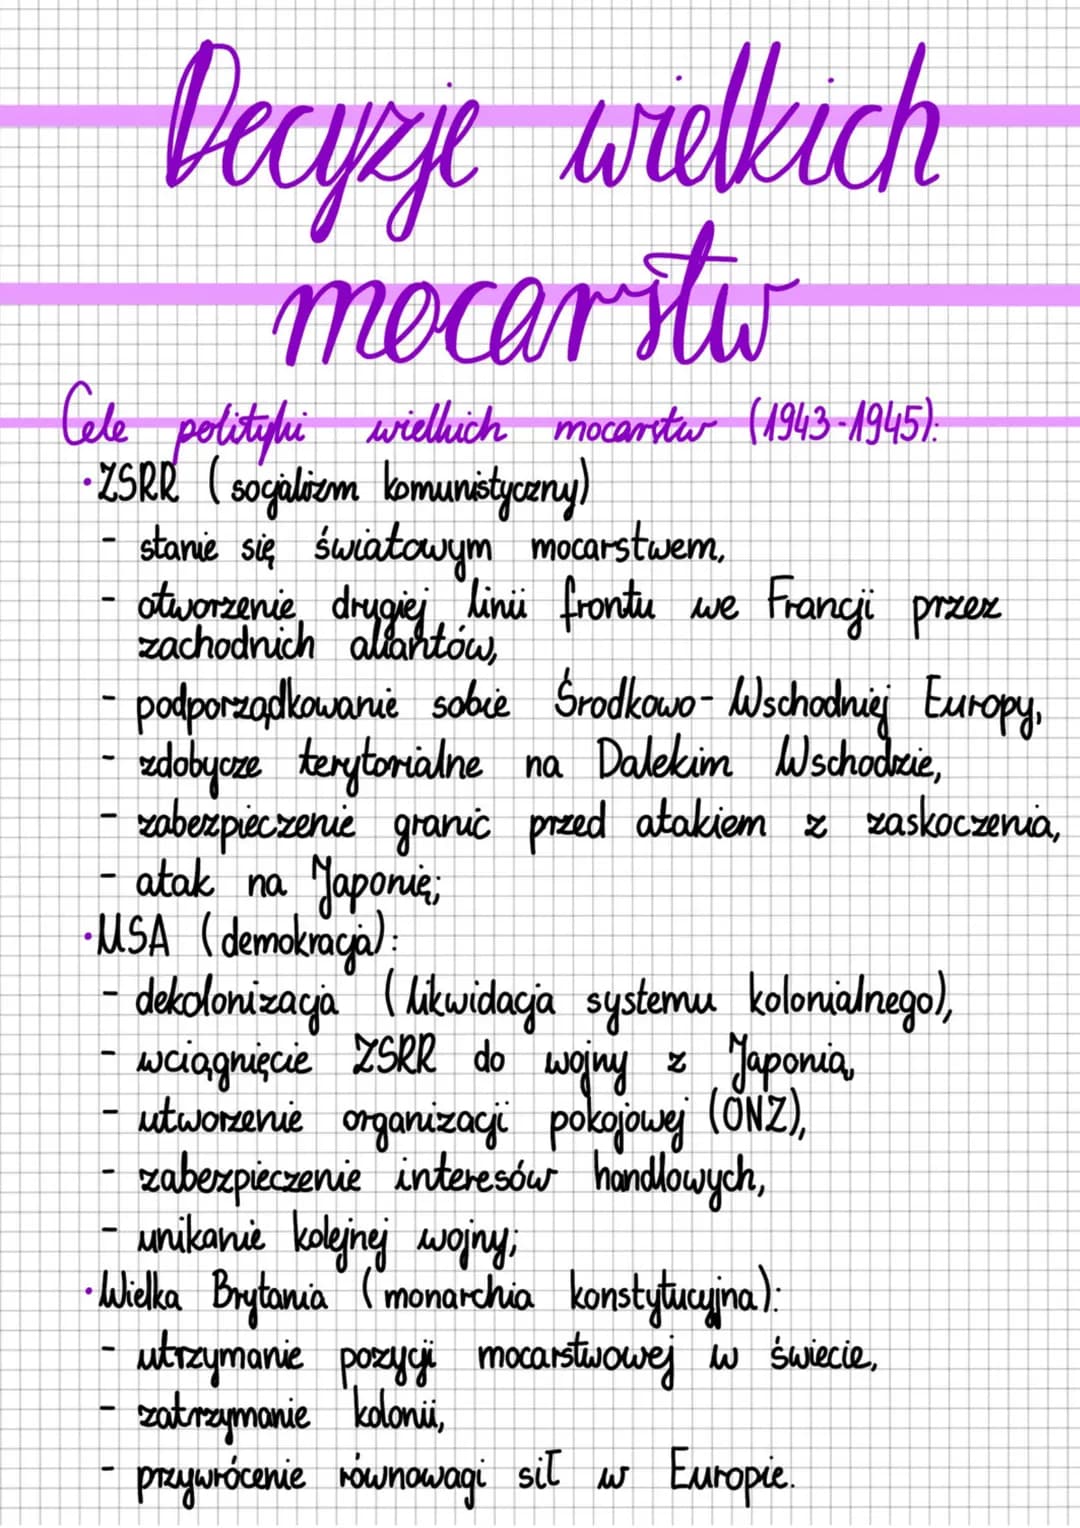 Decyzje wielkich
mocarstw
Cele polityki wielkich mocarstw (1943-1945):
·ZSRR (socjalizm komunistyczny)
- stanie się światowym mocarstwem,
- otworzenie drugiej linii frontu we Francji przez
zachodnich aliantów,
- podporządkowanie sobie Środkowo-Wschodniej Europy,
- zdobycze terytorialne na Dalekim Wschodzie,
- zabezpieczenie granic przed atakiem z zaskoczenia,
- atak na Japonię;
·USA (demokracja):
- dekolonizacja (likwidacja systemu kolonialnego),
- wciągnięcie ZSRR do wojny z Japonią,
- utworzenie organizacji pokojowej (ONZ),
- zabezpieczenie interesów handlowych,
- unikanie kolejnej wojny;
·Wielka Brytania (monarchia konstytucyjna):
- utrzymanie pozycji mocarstwowej w świecie,
- zatrzymanie kolonii,
- przywrócenie równowagi sił w Europie.